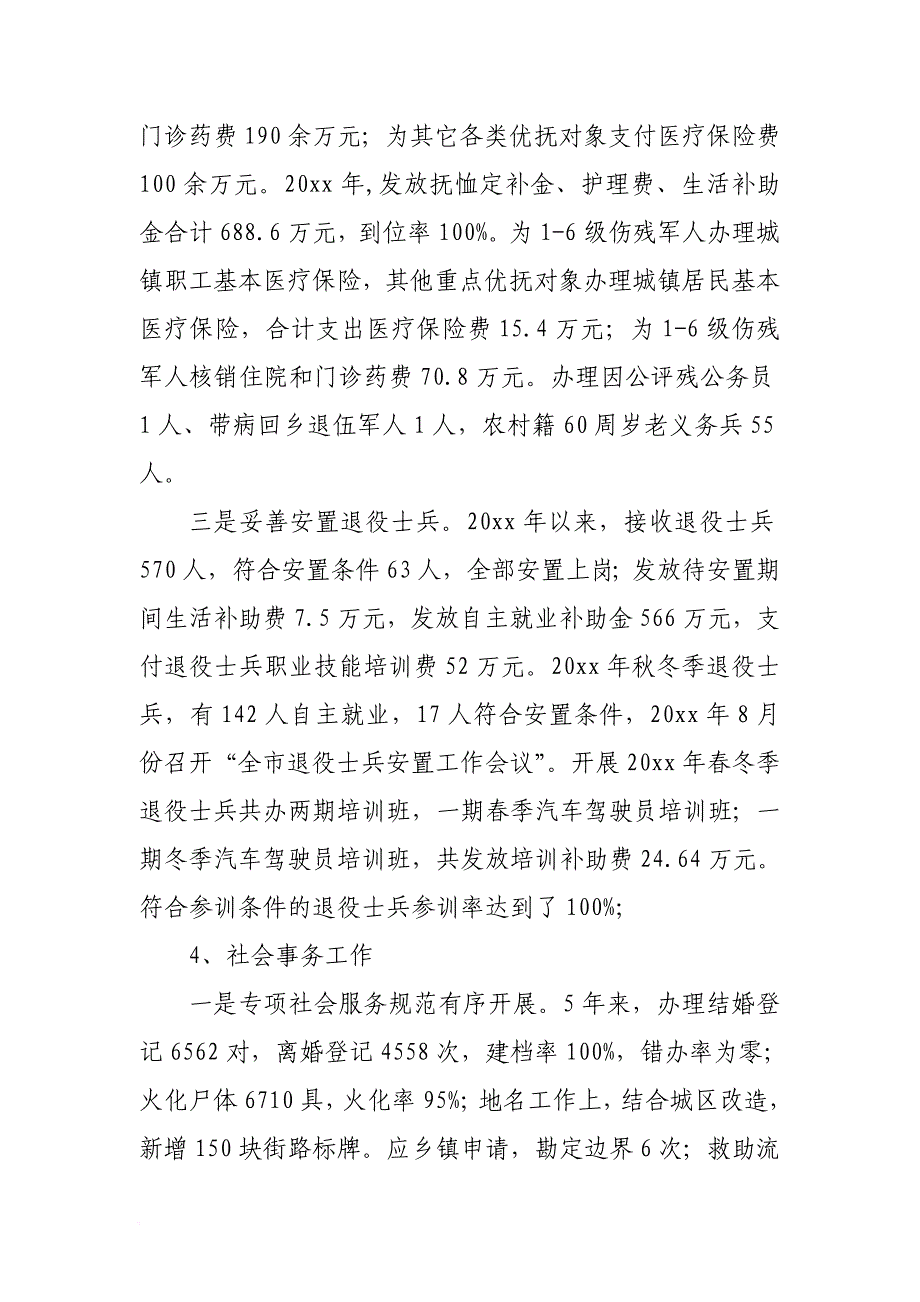 门诊药费 190 余万元；为其它各类优抚对象支付医疗保险费
100 余万元。20xx 年,发放抚恤定补金、护理费、生活补助
金合计 688.6 万元，到位率 100%。为 1-6 级伤残军人办理城
镇职工基本医疗保险，其他重点优抚对象办理城镇居民基本
医疗保险，合计支出医疗保险费 15.4 万元；为 1-6 级伤残
军人核销住院和门诊药费 70.8 万元。办理因公评残公务员
1 人、带病回乡退伍军人 1 人，农村籍 60 周岁老义务兵 55
人。
三是妥善安置退役士兵。20xx 年以来，接收退役士兵
570 人，符合安置条件 63 人，全部安置上岗；发放待安置期
间生活补助费 7.5 万元，发放自主就业补助金 566 万元，支
付退役士兵职业技能培训费 52 万元。20xx 年秋冬季退役士
兵，有 142 人自主就业，17 人符合安置条件，20xx 年 8 月
份召开“全市退役士兵安置工作会议”。开展 20xx 年春冬季
退役士兵共办两期培训班，一期春季汽车驾驶员培训班；一
期冬季汽车驾驶员培训班，共发放培训补助费 24.64 万元。
符合参训条件的退役士兵参训率达到了 100%;
4、社会事务工作
一是专项社会服务规范有序开展。5 年来，办理结婚登
记 6562 对，离婚登记 4558 次，建档率 100%，错办率为零；
火化尸体 6710 具，火化率 95%；地名工作上，结合城区改造，
新增 150 块街路标牌。应乡镇申请，勘定边界 6 次；救助流